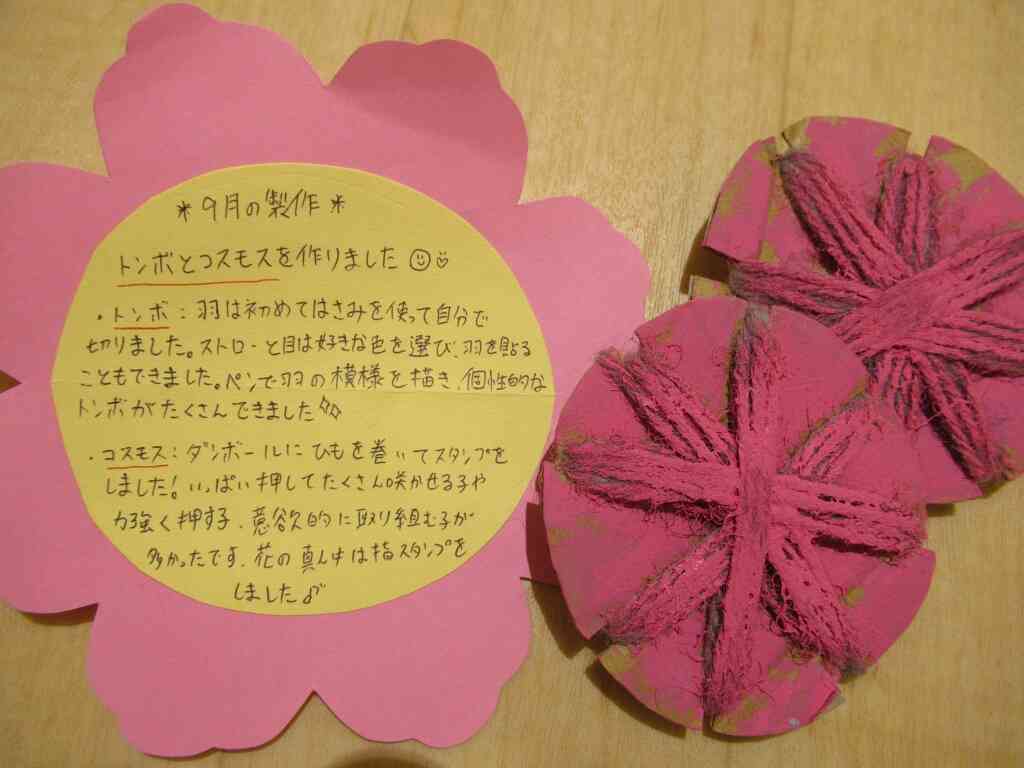 *9月の製作*
トンボとコスモスを作りました
・トンボ：羽は初めてはさみを使って自分で
切りました。ストローと目は好きな色を選び、羽を貼る
こともできました。ペンで羽の模様を描き、個性的な
トンボがたくさんできました
・コスモス：ダンボールにひもを巻いてスタンプを
しました！いっぱい押してたくさん咲かせる子や
力強く押す子、意欲的に取り組む子が
多かったです。花の真ん中は指スタンプを
しました♪